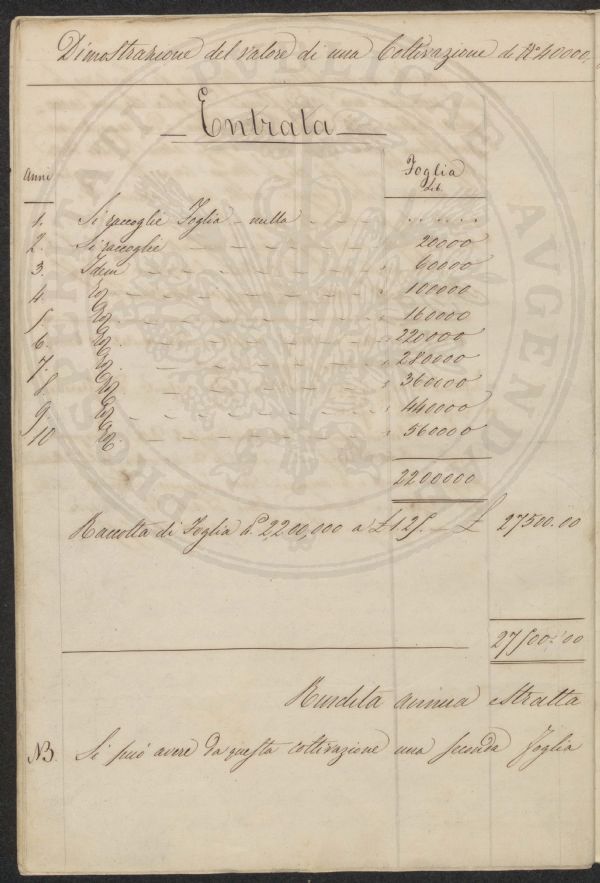 Dimostrazione del valore di una Coltivazione di N° 40000,
Entrata
Anni
Foglia
Lib.
1. Si raccoglie Foglia - nulla
2. Si raccoglie 20000
3. Idem 60000
4. 100000
5. 160000
6. 220000
7. 280000
8 360000
9. 440000
10 560000
2200000
Raccolta di Foglia 2200,000 a £ 1.25. £ 27500.00
27500.00
Rendita annua estratta
NB. Si può avere da questa coltivazione una seconda foglia
PROSPERITATI PUBLICAE AUGENDAE